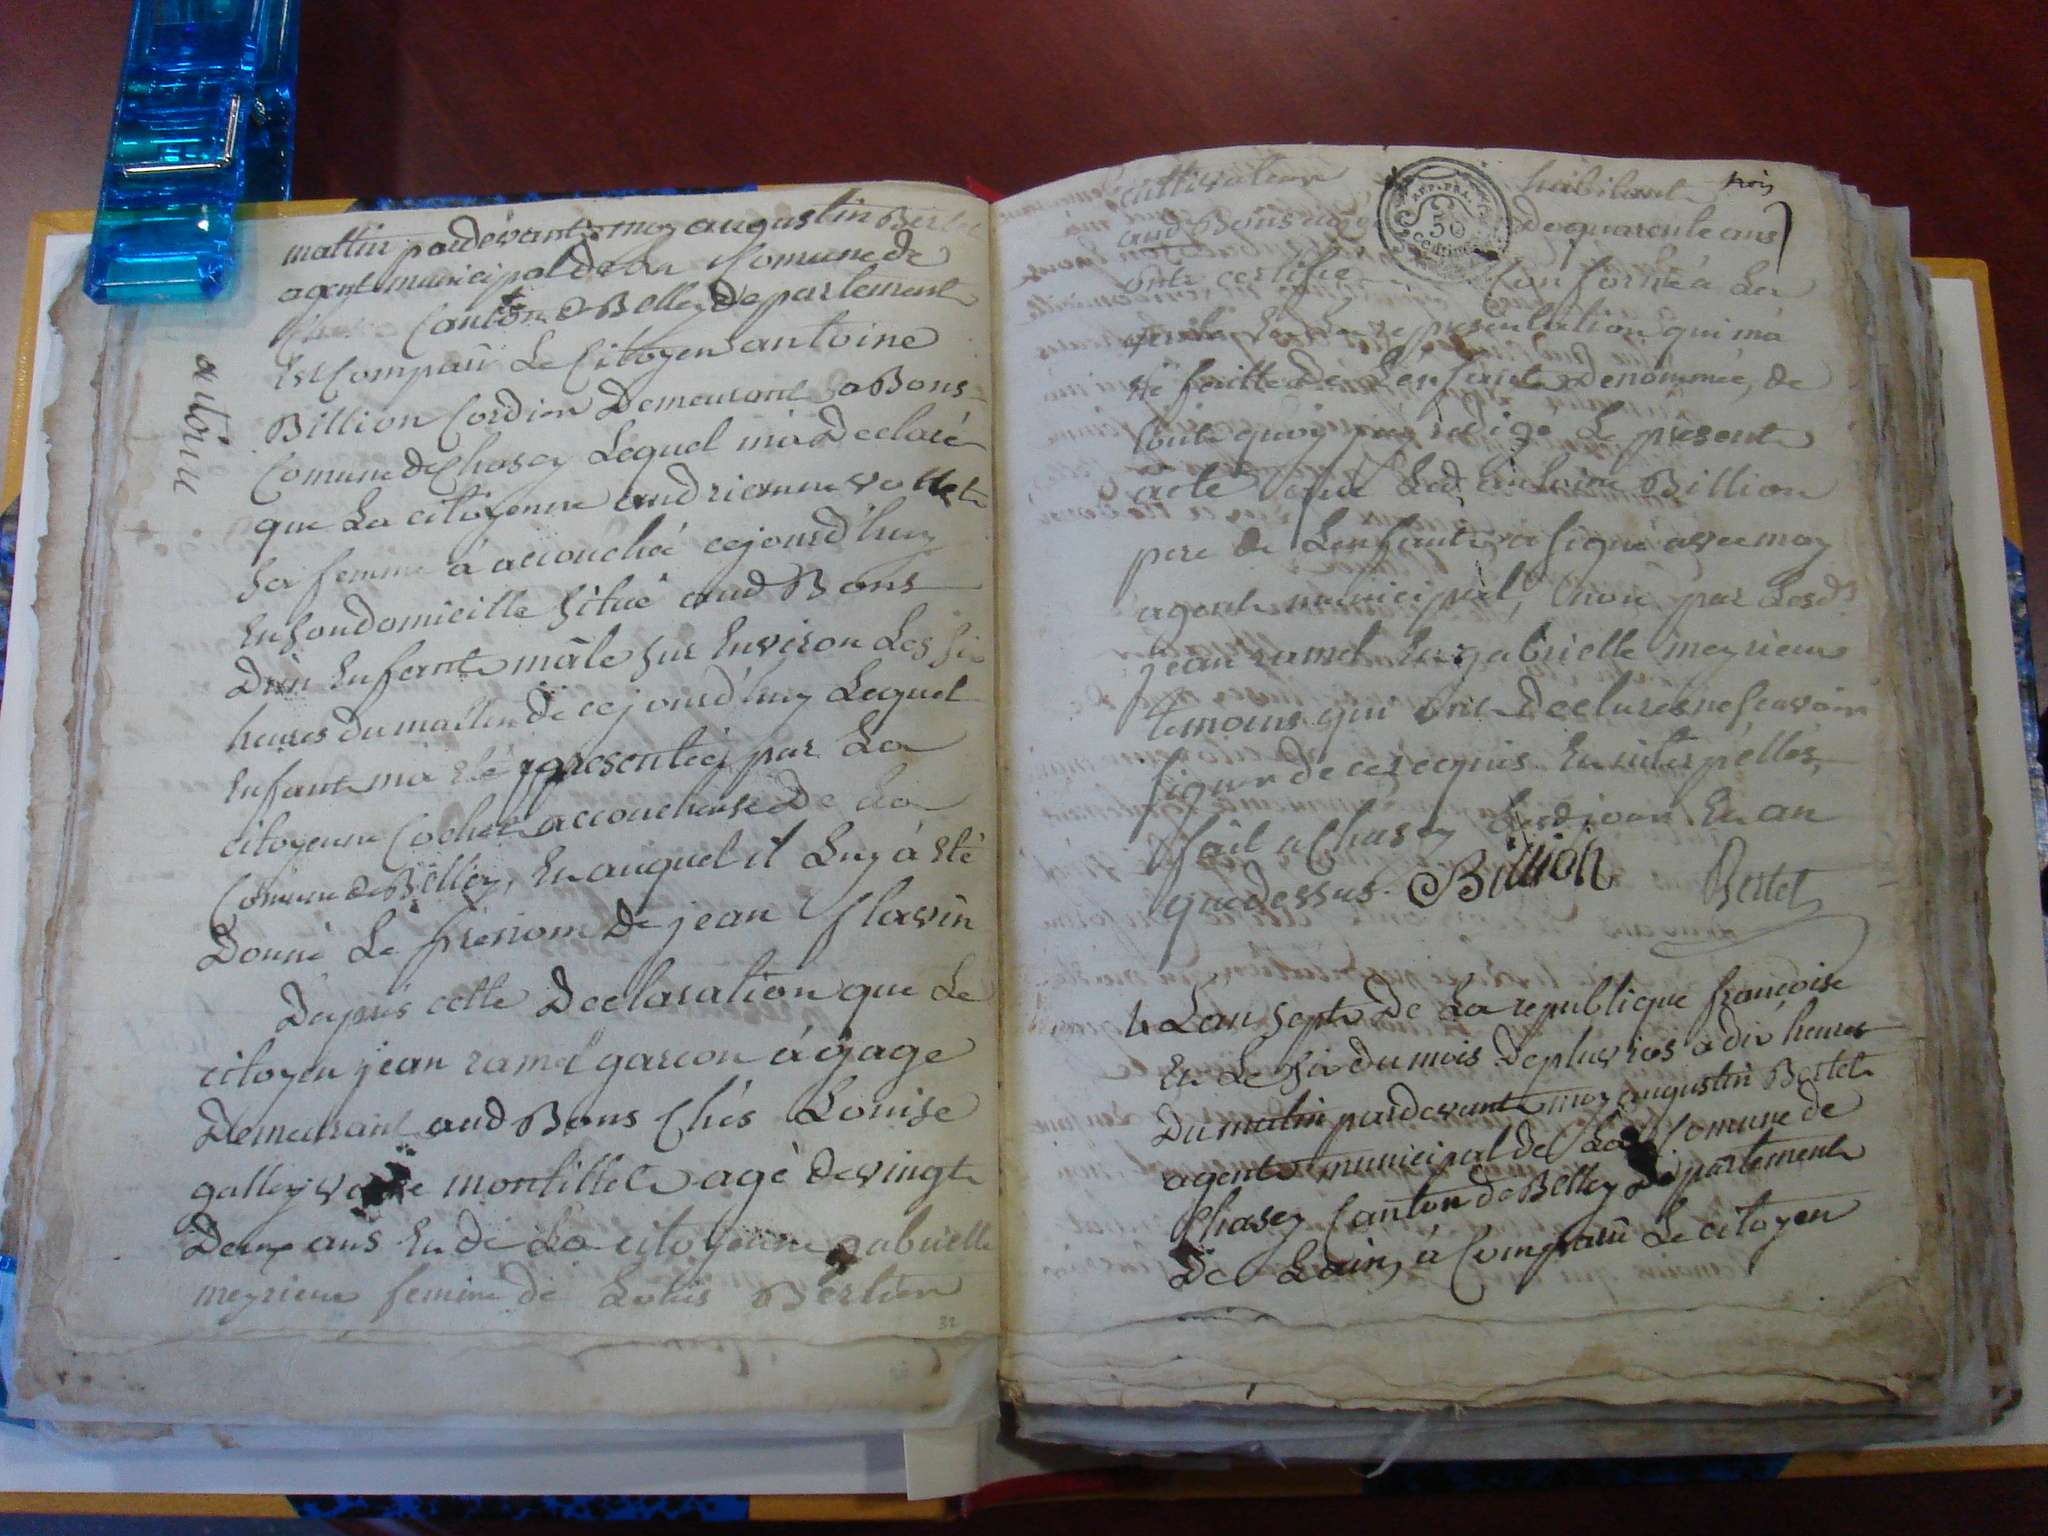 mattin pardevant moy augustin Bertet
agent municipal de la Comune de
Canton de Belley Departement
Est Comparû Le Citoyen antoine
Billion Cordier Demeurant a Bons
Comune de Chasey Lequel m'a Declaré
que La citoyenne andrienne vollet
Sa femme á accouchée cejourd'huy
En Son domicille Situé aud Bons
D'un Enfant mâle Sur Environ Les Six
heures du mattin de cejourd'huy Lequel
Enfant m'a été representée par La
citoyenne Cochet accoucheuse De La
Comune de Belley, En auquel il Luy á été
Donné Le prenom De jean flavin
Dapres cette Declaration que Le
citoyen jean ramel garcon á gage
Demeurant aud Bons Chés Louise
galley montillet agé de vingt
Deux ans En de La citoyenne gabrielle
meyrieux femme de Louis Bertien
32
antoine
trois
cultivateur habitant
aud Bons De quarente ans
ont certifie Conforme a La
verité En La representation qui m'a
été faitte de L'enfant Denommée, de
toute quoy j'ay redigé Le present
acte que Led. antoine Billion
pere de L'enfant a signé avec moy
agent municipal, non par Lesds
jean ramel En gabrielle meyrieux
temoins qui ont Declarés ne Scavoir
Signer de ce requis En interpellés,
fait a Chasey Lesd jour En an
que dessus. Billion Bertet
4 Lan Sept De La republique françoise
En Le Six du mois De pluvios a dix heures
Du matin pardevant moy augustin Bertet
agent municipal de La Comune de
Chasey Canton de Belley Departement
De Lain, á Comparû Le citoyen